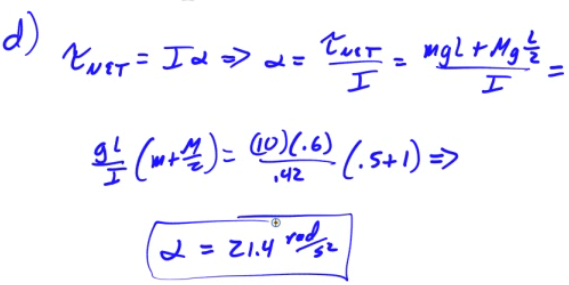 d) τ_NET = Iα ⇒ α = τ_NET/I = (mgL + Mg L/2)/I =
gL/I (m + M/2) = (10)(.6)/.42 (.5+1) ⇒
α = 21.4 rad/s²